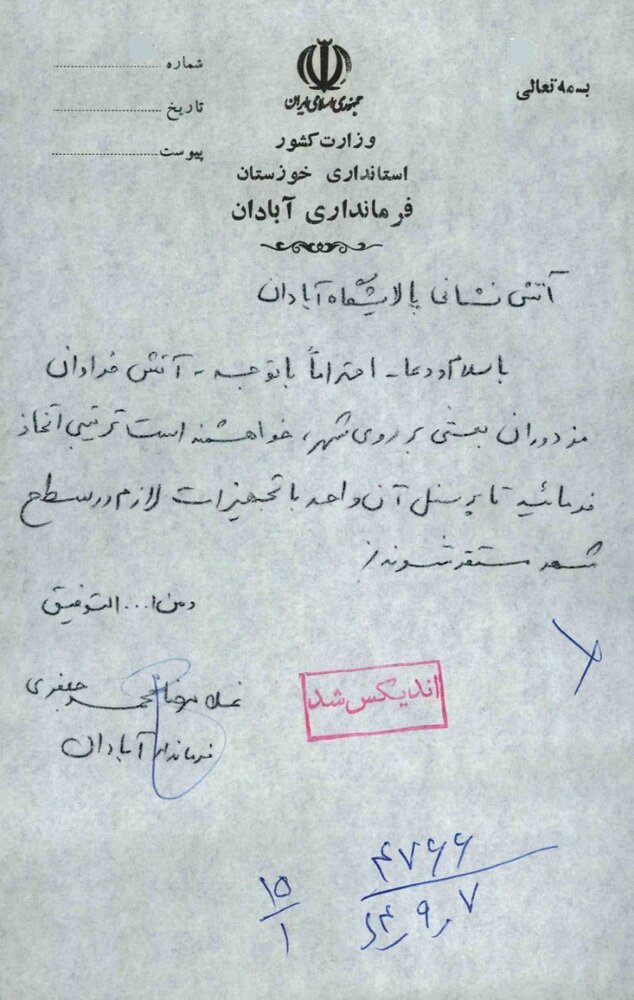 بسمه تعالی
جمهوری اسلامی ایران
وزارت کشور
استانداری خوزستان
فرمانداری آبادان
شماره
تاریخ
پیوست
آتش نشانی پالایشگاه آبادان
با سلام و دعا - احتراماً با توجه - آتش فراوان
مزدوران بعثی بر روی شهر، خواهشمند است ترتیبی اتخاذ
فرمائید تا پرسنل آن واحد با تجهیزات لازم در سطح
شهر مستقر شوند
و من ا... التوفیق
غلامرضا محمد جعفری
فرماندار آبادان
اندیکس شد
۴۷۶۶
۱۵
۱